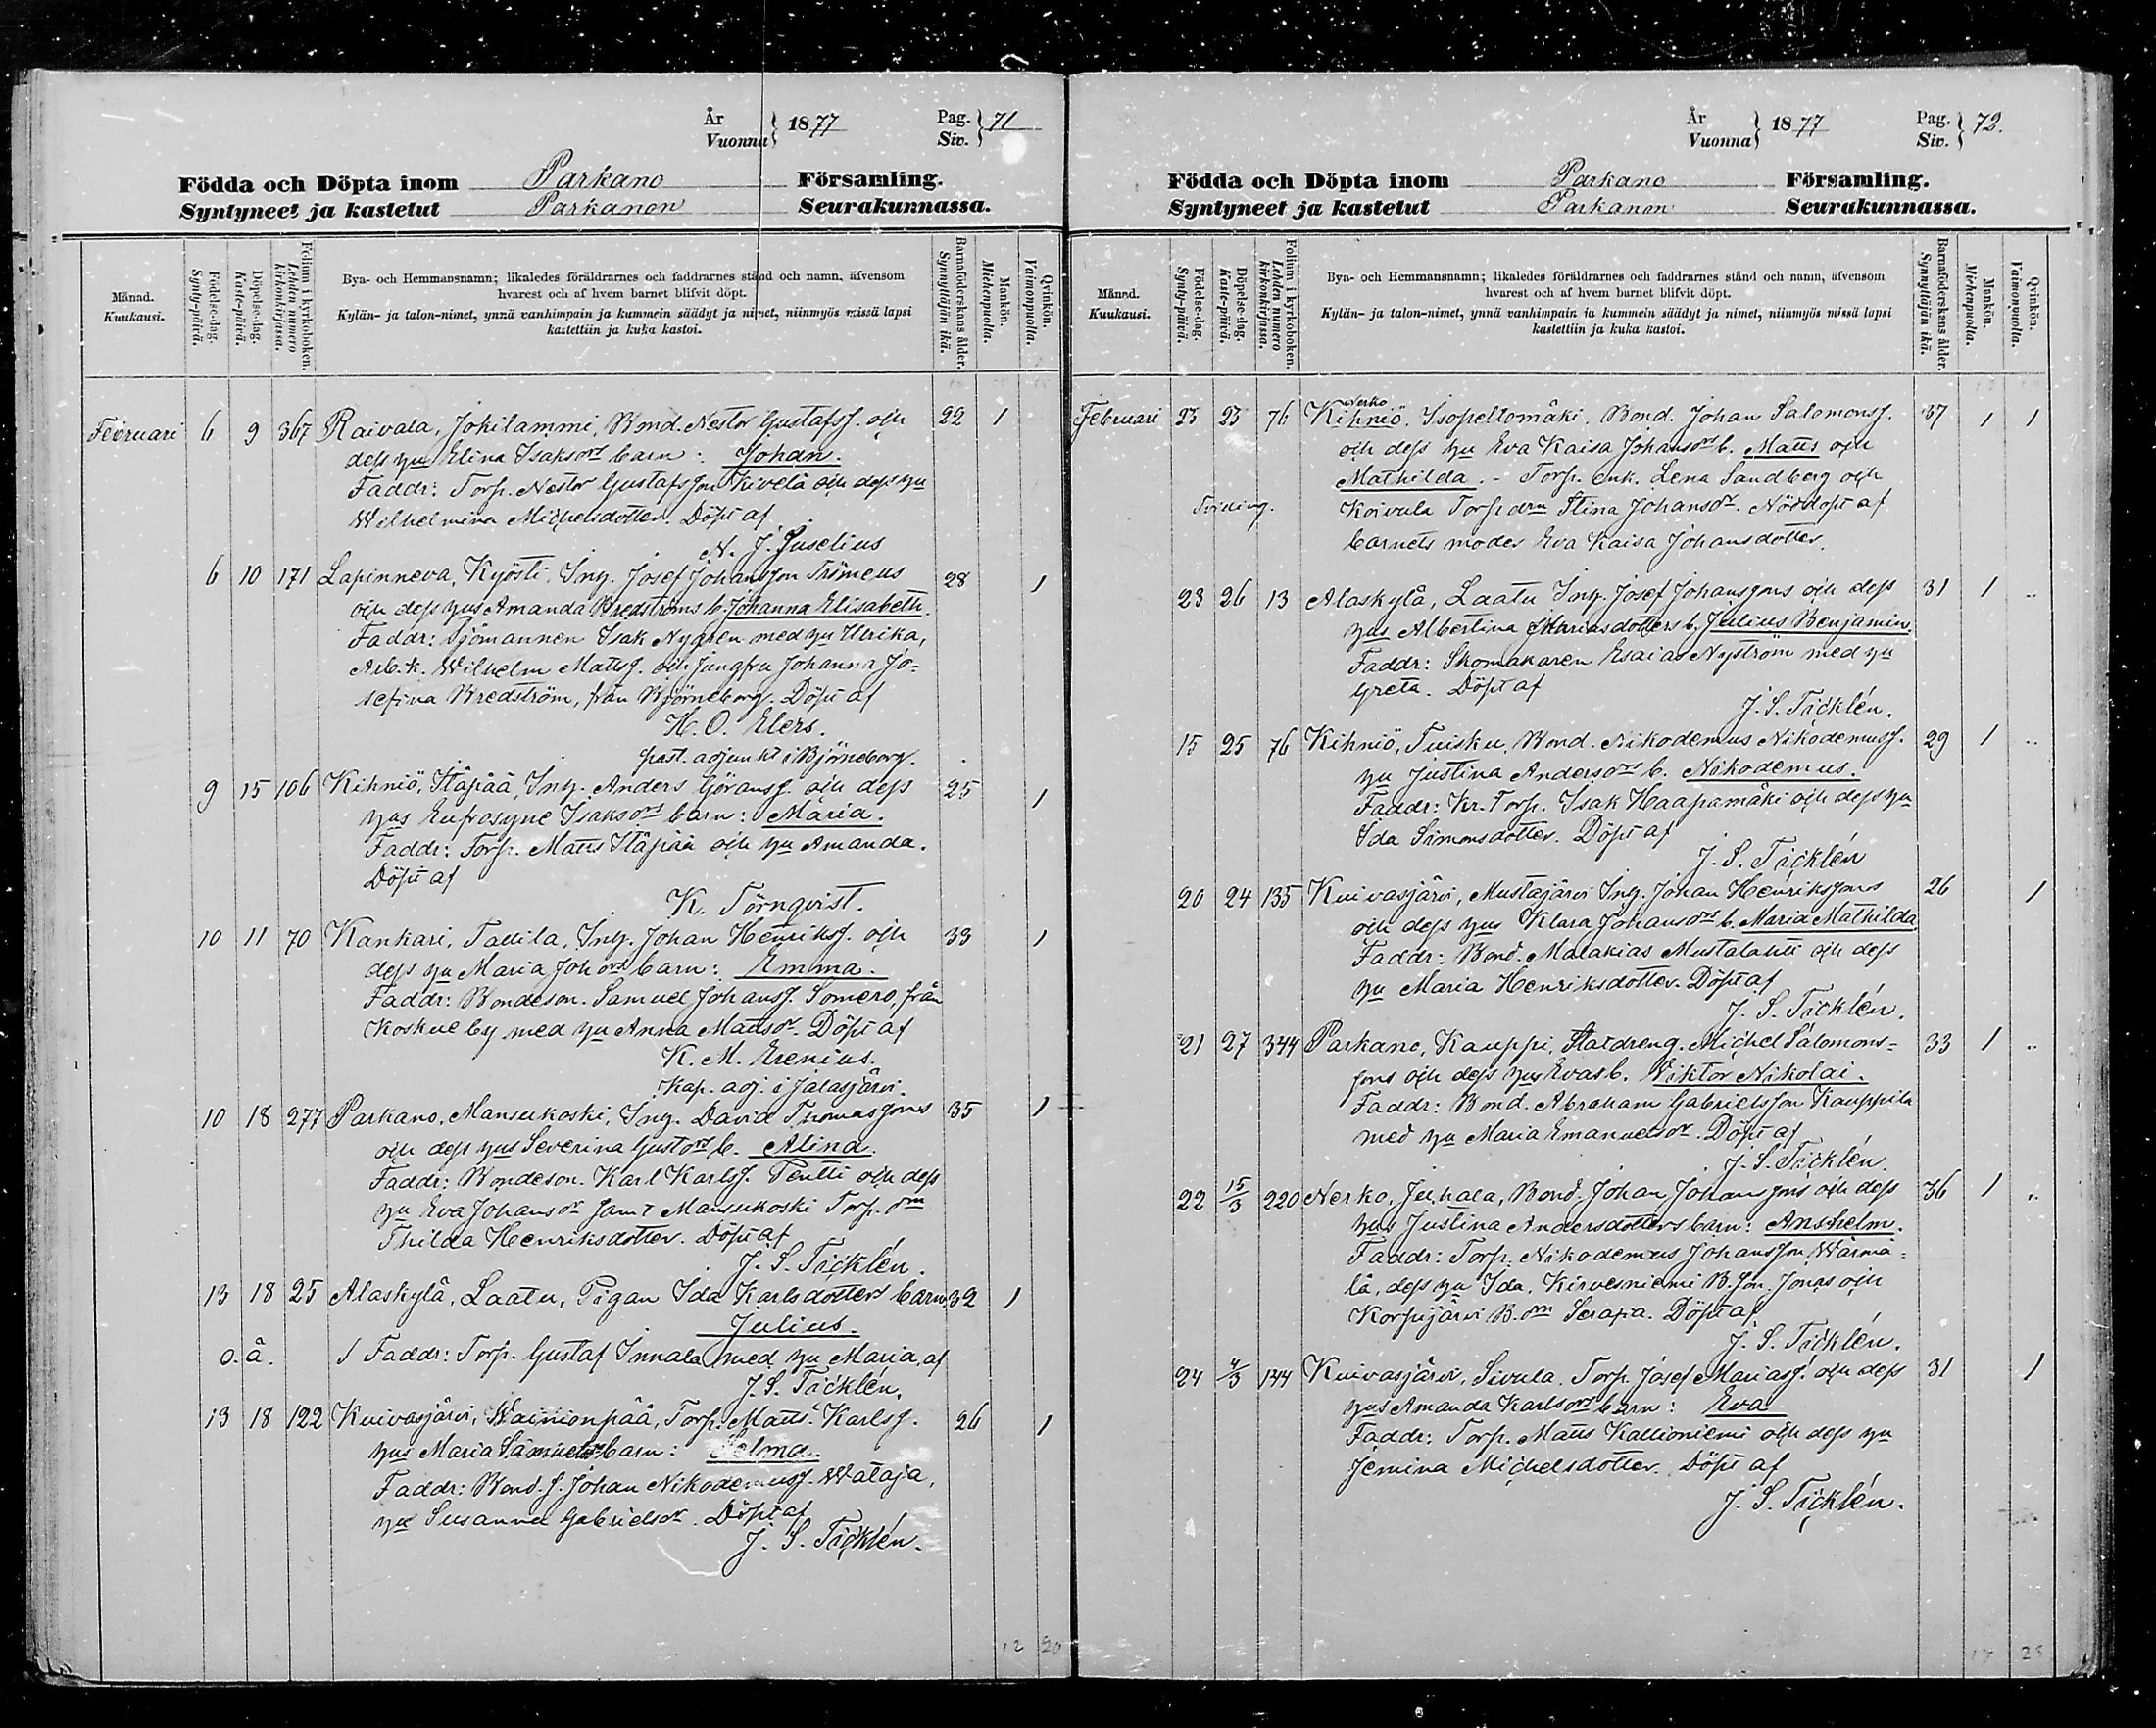 År
Vuonna } 1877
Pag.
Siv. } 71
Födda och Döpta inom Parkano Församling.
Syntyneet ja kastetut Parkanon Seurakunnassa.
Månad.
Kuukausi.
Födelse-dag.
Synty-päivä.
Döpelse-dag.
Kaste-päivä.
Folium i kyrkoboken.
Lehden numero kirkonkirjassa.
Bya- och Hemmansnamn; likaledes föräldrarnes och faddrarnes stånd och namn, äfvensom
hvarest och af hvem barnet blifvit döpt.
Kylän- ja talon-nimet, ynnä vanhimpain ja kummein säädyt ja nimet, niinmyös missä lapsi
kastettiin ja kuka kastoi.
Barnaföderskans ålder.
Synnyttäjän ikä.
Mankön.
Miehenpuolia.
Qvinkön.
Vaimonpuolia.
Februari 6 9 367 Raivala, Jokilammi, Bond. Nestor Gustafsf. och 22 1
dess hu Elina Isaksdrs barn: Johan.
Faddr: Torp. Nestor Gustafsson Kivelä och dess hu
Wilhelmina Michelsdotter. Döpt af
N. J. Juselius
6 10 171 Lapinneva, Kyösti, Inh. Josef Johansson Trömeus 28 1
och dess hus Amanda Bredströms b. Johanna Elisabeth.
Faddr: Sjömannen Isak Nygren med hu Ulrika,
Arb.k. Wilhelm Mattsf. och Jungfru Johanna Jo-
sefina Bredström, från Björneborg. Döpt af
H. O. Elers.
past. adjunkt i Björneborg.
9 15 106 Kihniö, Itäpää, Inh. Anders Göransf. och dess 25 1
hus Eufrosyne Isaksdrs barn: Maria.
Faddr: Torp. Matts Itäpää och hu Amanda.
Döpt af
K. Törnqvist.
10 11 70 Kankari, Tallila, Inh. Johan Henriksf. och 33 1
dess hu Maria Johdrs barn: Emma.
Faddr: Bondeson. Samuel Johansf. Somero, från
Koskue by med hu Anna Mattsdr. Döpt af
K. M. Erenius.
Kap. adj. i Jalasjärvi.
10 18 277 Parkano, Mansukoski, Inh. David Thomassons 35 1
och dess hus Severina Gustdrs b. Alina.
Faddr: Bondeson. Karl Karlsf. Tentti och dess
hu Eva Johansdr samt Mansukoski Torp. drn
Thilda Henriksdotter. Döpt af
J. S. Täcklén.
13 18 25 Alaskylä, Laatu, Pigan Ida Karlsdotters barn 32 1
Julius.
o. ä. / Faddr: Torp. Gustaf Innala med hu Maria, af
J. S. Täcklén.
13 18 122 Kuivasjärvi, Wainionpää, Torp. Matts Karlsf. 26 1
hus Maria Samuelsdrs barn: Selma.
Faddr: Bond.f. Johan Nikodemusf. Wataja,
hu Susanna Gabrielsdr. Döpt af
J. S. Täcklén.
12 20
År
Vuonna } 1877
Pag.
Siv. } 72.
Födda och Döpta inom Parkano Församling.
Syntyneet ja kastetut Parkanon Seurakunnassa.
Månad.
Kuukausi.
Födelse-dag.
Synty-päivä.
Döpelse-dag.
Kaste-päivä.
Folium i kyrkoboken.
Lehden numero kirkonkirjassa.
Bya- och Hemmansnamn; likaledes föräldrarnes och faddrarnes stånd och namn, äfvensom
hvarest och af hvem barnet blifvit döpt.
Kylän- ja talon-nimet, ynnä vanhimpain ja kummein säädyt ja nimet, niinmyös missä lapsi
kastettiin ja kuka kastoi.
Barnaföderskans ålder.
Synnyttäjän ikä.
Mankön.
Miehenpuolia.
Qvinkön.
Vaimonpuolia.
Nerko
Februari 23 23 76 Kihniö. Isopeltomäki. Bond. Johan Salomonsf. 37 1 1
och dess hu Eva Kaisa Johansdrs b. Matts och
Mathilda. - Torp. enk. Lena Sandberg och
Tvilling. Koivula Torp. drn Stina Johansdr. Nöddöpt af
barnets moder Eva Kaisa Johansdotter.
23 26 13 Alaskylä, Laatu Inh. Josef Johanssons och dess 31 1 ..
hus Albertina Mariasdotters b. Julius Benjamin.
Faddr: Skomakaren Esaias Nyström med hu
Greta. Döpt af
J. S. Täcklén.
15 25 76 Kihniö, Tuisku, Bond. Nikodemus Nikodemusf. 29 1 ..
hu Justina Andersdrs b. Nikodemus.
Faddr: Kr. Torp. Isak Haapamäki och dess hu
Ida Simonsdotter. Döpt af
J. S. Täcklén
20 24 135 Kuivasjärvi, Mustajärvi Inh. Johan Henrikssons 26 1
och dess hus Klara Johansdrs b. Maria Mathilda
Faddr: Bond. Malakias Mustalahti och dess
hu Maria Henriksdotter. Döpt af
J. S. Täcklén.
21 27 344 Parkano, Kauppi, Statdreng. Michel Salomons- 33 1 ..
sons och dess hus Evas b. Viktor Nikolai.
Faddr: Bond. Abraham Gabrielsson Kauppila
med hu Maria Emanuelsdr. Döpt af
J. S. Täcklén.
22 15/3 220 Nerko, Juhala, Bond. Johan Johanssons och dess 36 1 ..
hus Justina Andersdotters barn: Anshelm.
Faddr: Torp. Nikodemus Johansson Wärma-
lä, dess hu Ida, Kirvesniemi B.son. Jonas och
Korpijärvi B.drn Serafia. Döpt af
J. S. Täcklén.
24 4/3 144 Kuivasjärvi, Sivula. Torp. Josef Mariasf. och dess 31 1
hus Amanda Karlsdrs barn: Eva
Faddr: Torp. Matts Kallioniemi och dess hu
Jemina Michelsdotter. Döpt af
J. S. Täcklén.
17 23